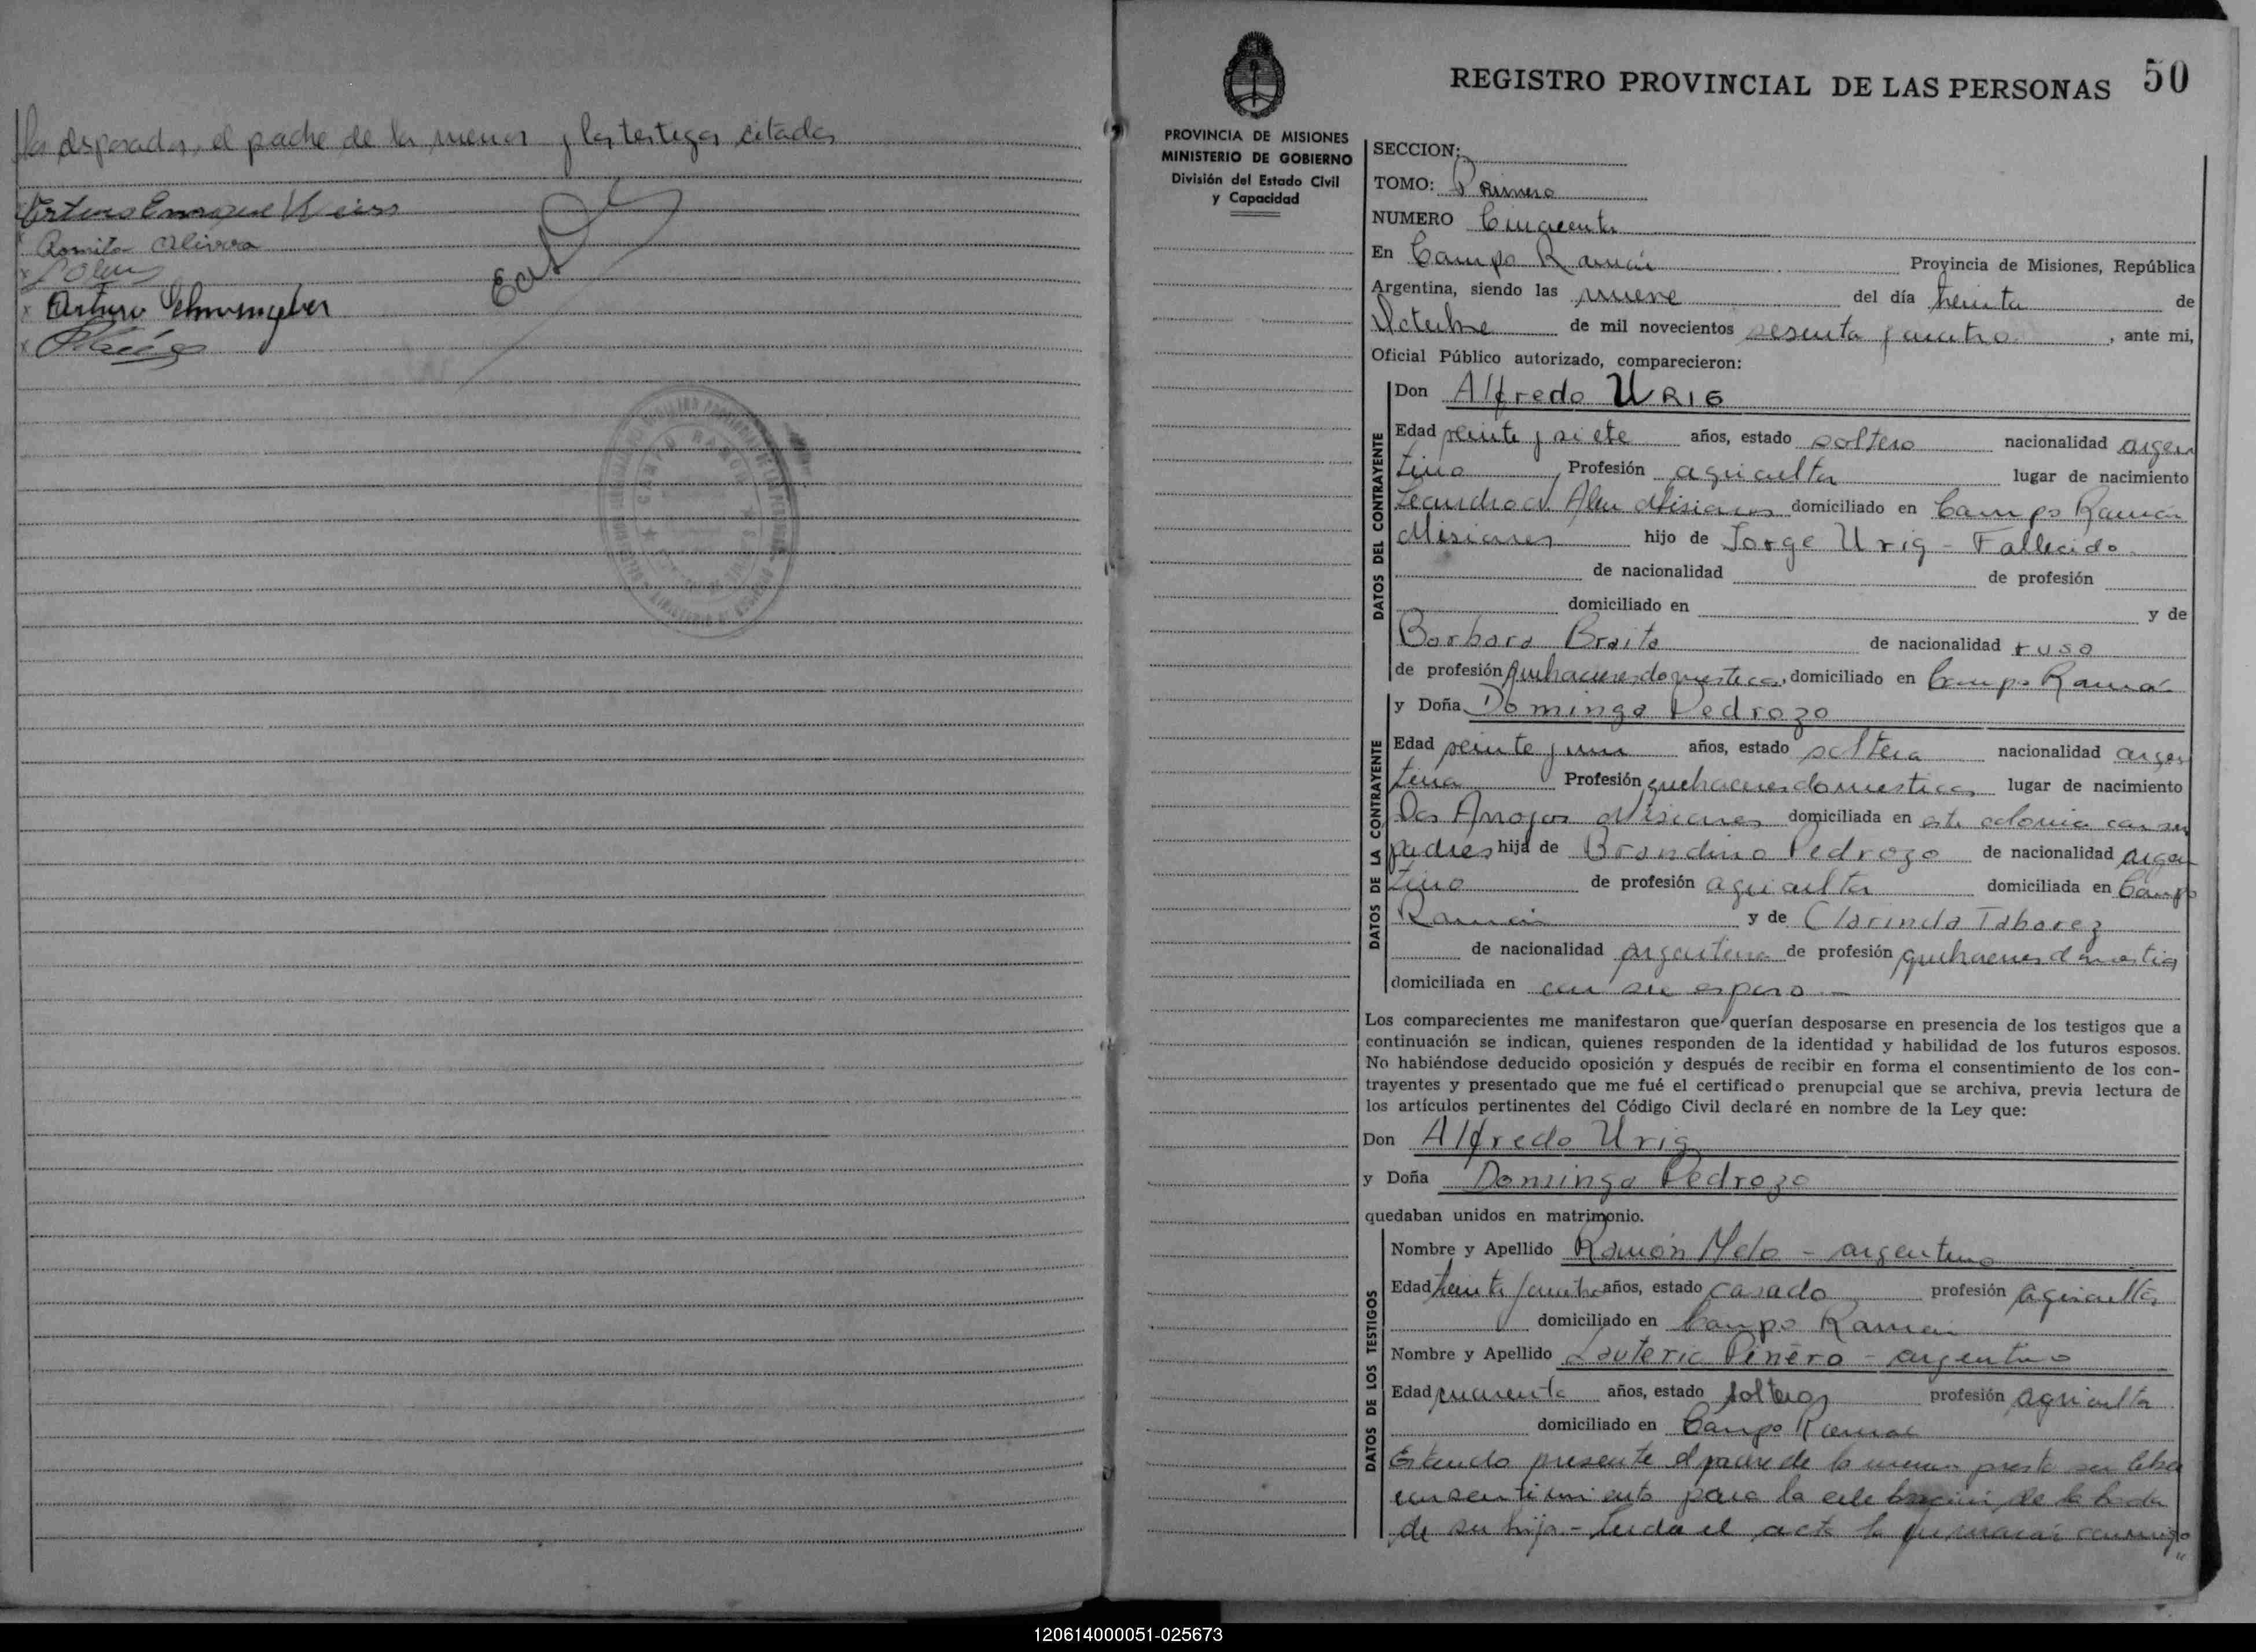 los desposados, el padre de la menor y los testigos citados
Arturo Enrique Weiss
Romita Olivera
Arturo
50
REGISTRO PROVINCIAL DE LAS PERSONAS
PROVINCIA DE MISIONES
MINISTERIO DE GOBIERNO
División del Estado Civil
y Capacidad
SECCION:
TOMO: Primero
NUMERO Cincuenta
En Campo Ramón Provincia de Misiones, República
Argentina, siendo las nueve del día treinta de
Octubre de mil novecientos sesenta y cuatro, ante mi,
Oficial Público autorizado, comparecieron:
DATOS DEL CONTRAYENTE
Don Alfredo URIG
Edad veinte y siete años, estado soltero nacionalidad argen
tino, Profesión agricultor lugar de nacimiento
Leandro N. Alem Misiones domiciliado en Campo Ramón
Misiones hijo de Jorge Urig - Fallecido
de nacionalidad de profesión
domiciliado en y de
Barbara Braita de nacionalidad rusa
de profesión quehaceres domesticos, domiciliado en Campo Ramón
DATOS DE LA CONTRAYENTE
y Doña Dominga Pedrozo
Edad veinte y un años, estado soltera nacionalidad argen
tina Profesión quehaceres domesticos lugar de nacimiento
Dos Arroyos Misiones domiciliada en esta colonia con sus
padres hija de Brandino Pedrozo de nacionalidad argen
tino de profesión agricultor domiciliada en Campo
Ramón y de Clarinda Taborez
de nacionalidad argentina de profesión quehaceres domestic
domiciliada en con su esposo -
Los comparecientes me manifestaron que querían desposarse en presencia de los testigos que a
continuación se indican, quienes responden de la identidad y habilidad de los futuros esposos.
No habiéndose deducido oposición y después de recibir en forma el consentimiento de los con-
trayentes y presentado que me fué el certificado prenupcial que se archiva, previa lectura de
los artículos pertinentes del Código Civil declaré en nombre de la Ley que:
Don Alfredo Urig
y Doña Dominga Pedrozo
quedaban unidos en matrimonio.
DATOS DE LOS TESTIGOS
Nombre y Apellido Ramón Melo - argentino
Edad treinta y cuatro años, estado casado profesión agricultor
domiciliado en Campo Ramón
Nombre y Apellido Lauterio Piñero - argentino
Edad cuarenta años, estado soltero profesión agricultor
domiciliado en Campo Ramón
Estando presente el padre de la menor presta su libre
consentimiento para la celebración de la boda
de su hija - Leida el acta la firmaron conmigo
120614000051-025673